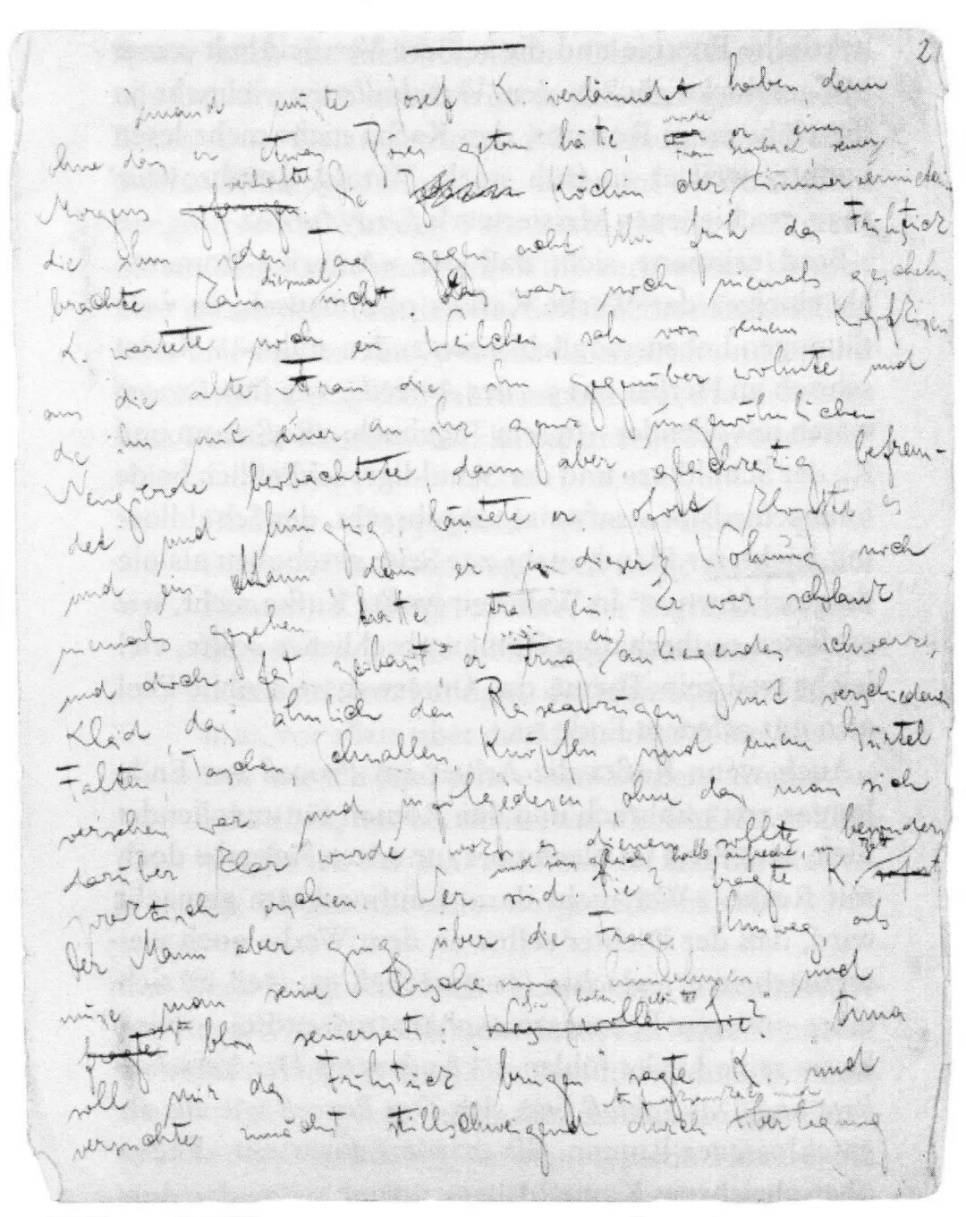 2
Jemand mußte Josef K. verläumdet haben, denn
ohne daß er etwas Böses getan hätte, wurde war er eines
Morgens gefangen verhaftet. Die Köchin der Zimmervermieterin, Frau Grubach seiner
die ihm jeden Tag gegen acht Uhr früh das Frühstück
brachte kam diesmal nicht. Das war noch niemals geschehn.
K. wartete noch ein Weilchen, sah von seinem Kopfkissen
aus die alte Frau die ihm gegenüber wohnte und
die ihn mit einer an ihr ganz ungewöhnlichen
Neugierde beobachtete, dann aber gleichzeitig befrem-
det und hungrig, läutete er. Sofort klopfte es
und ein Mann, den er in dieser Wohnung noch
niemals gesehen hatte trat ein. Er war schlank
und doch fest gebaut, er trug ein anliegendes schwarzes
Kleid, das ähnlich den Reiseanzügen mit verschiedenen
Falten, Taschen, Schnallen, Knöpfen und einem Gürtel
versehen war und infolgedessen, ohne daß man sich
darüber klar wurde, wozu es dienen sollte, besonders
praktisch erschien. „Wer sind Sie?" fragte K. und saß gleich halb aufrecht im Bett
Der Mann aber ging über die Frage hinweg, als
müsse man seine Erscheinung hinnehmen und
fragte bloß seinerseits: „Sie haben geläutet?" „Anna
soll mir das Frühstück bringen", sagte K. und
versuchte zunächst stillschweigend durch Aufmerksamkeit und Überlegung